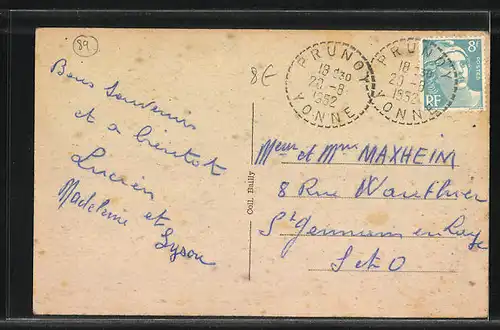 89
8€
PRUNOY
18 H30
20 -8
1952
YONNE
PRUNOY
18 H30
20 -8
1952
YONNE
8F
POSTES
RF
Bons Souvenirs
et a bientot
Lucien
Madeleine et
Lyson
Coll. Bailly
Meur et Mme MAXHEIM
8 Rue Wauthier
St Germain en Laye
S et O